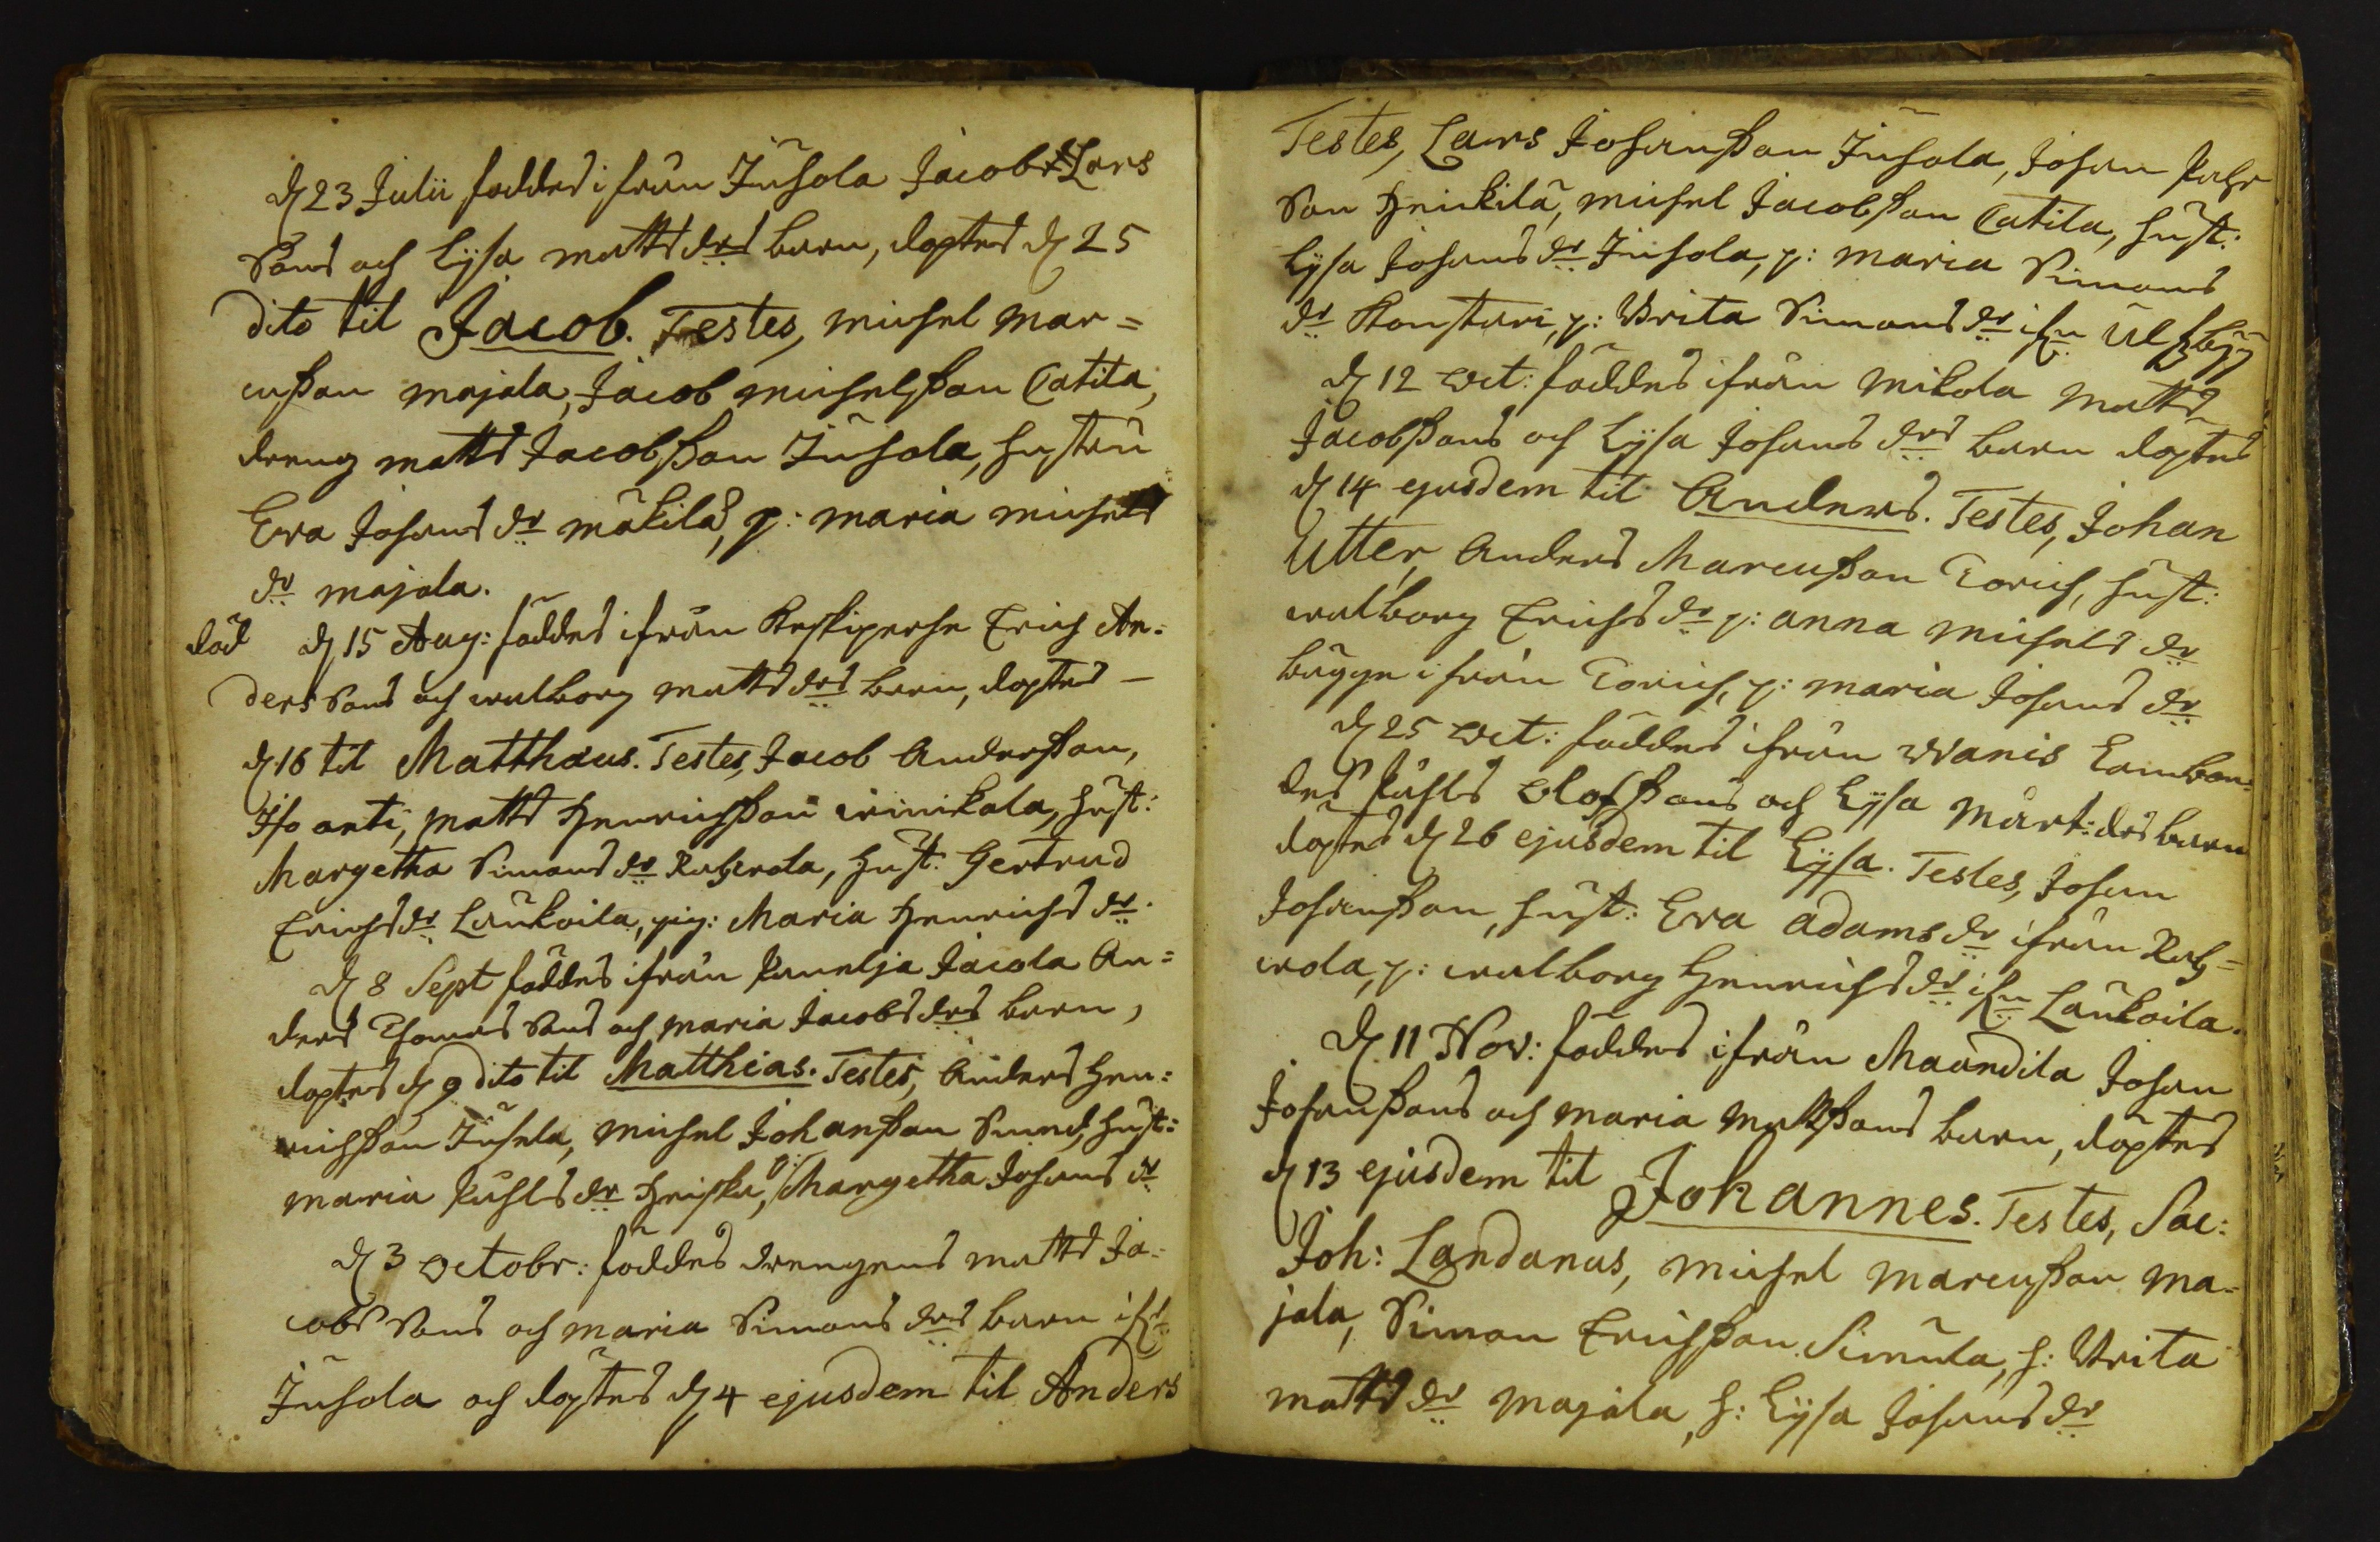 d 23 Julii foddes ifrån Juhola Jacob Lars
Sons och Lysa Matts drs barn, doptes d 25
dito til Jacob. Testes, Michel Mar=
cusson Majala, Jacob Michelsson Catila,
dreng Matts Jacobsson Juhola, hustru
Eva Johans dr Mäkilä, p: Maria Michels
dr Majala.
död d 15 Aug: föddes ifrån Keskiperhe Erich An=
ders Sons och Walborg Matts drs barn, doptes –
d 16 til Matthæus. Testes, Jacob Andersson,
Iso anti, Matts Henrichsson winikala, hust:
Margetha Simons dr , Hust: Gertrud
Erichs dr Laukoila, pig: Maria Henrichs dr.
d 8 Sept föddes ifrån Panelja Jacola An=
ders Thomas Sons och Maria Jacobs drs barn,
doptes d 9 dito til Matthias. Testes, Anders Hen=
richsson Juhola, Michel Johansson Sund, hust:
Maria Påhls dr Heiska, p: Margetha Johans dr
d 3 Octobr: föddes drengens Matts Ja=
cobs Sons och Maria Simons drs barn ifn
Juhola och döptes d 4 ejusdem til Anders
Testes, Lars Johansson Juhola, Johan Påhls
Son Heickilä, Michel Jacobsson Catila, hust:
Lysa Johans dr Juhola, p: Maria Simons
dr Konstari, p: Brita Simons dr ifn Ulfsby
d 12 Oct: föddes ifrån Mikola Matts
Jacobssons och Lysa Johans drs barn doptes
d 14 ejusdem til Anders. Testes, Johan
Utter, Anders Marcusson Torich, hust:
Walborg Erichs dr p: Anna Michels dr
bägge ifrån Torich, p: Maria Johans dr
d 25 Oct: föddes ifrån Wanis Lambon=
des Påhls Olofssons och Lysa Mårt: drs barn
döptes d 26 ejusdem til Lysa. Testes, Johan
Johansson, hust: Eva Adams dr ifrån
, p: Walborg Henrichs dr ifn Laukoila.
d 11 Nov: föddes ifrån Maandila Johan
Johanssons och Maria Mattssons barn, döptes
d 13 ejusdem til Johannes. Testes, Sac:
Joh: Landanus, Michel Marcusson Ma=
jala, Simon Erichsson Simula, h: Brita
Matts dr Majala, h: Lysa Johans dr